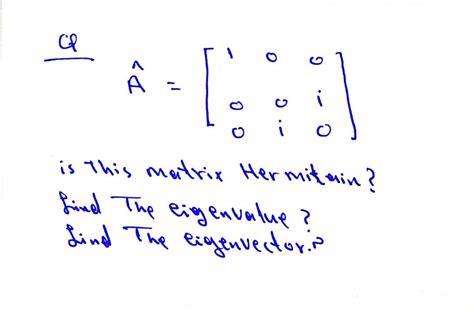 Q
Â = [ 1 0 0
0 0 i
0 i 0 ]
is This matrix Hermitain?
find The eigenvalue?
find The eigenvector.?